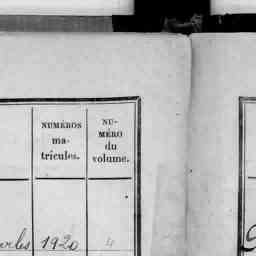 NUMÉROS
ma-
tricules.
NU-
MÉRO
du
volume.
arles 1920 4